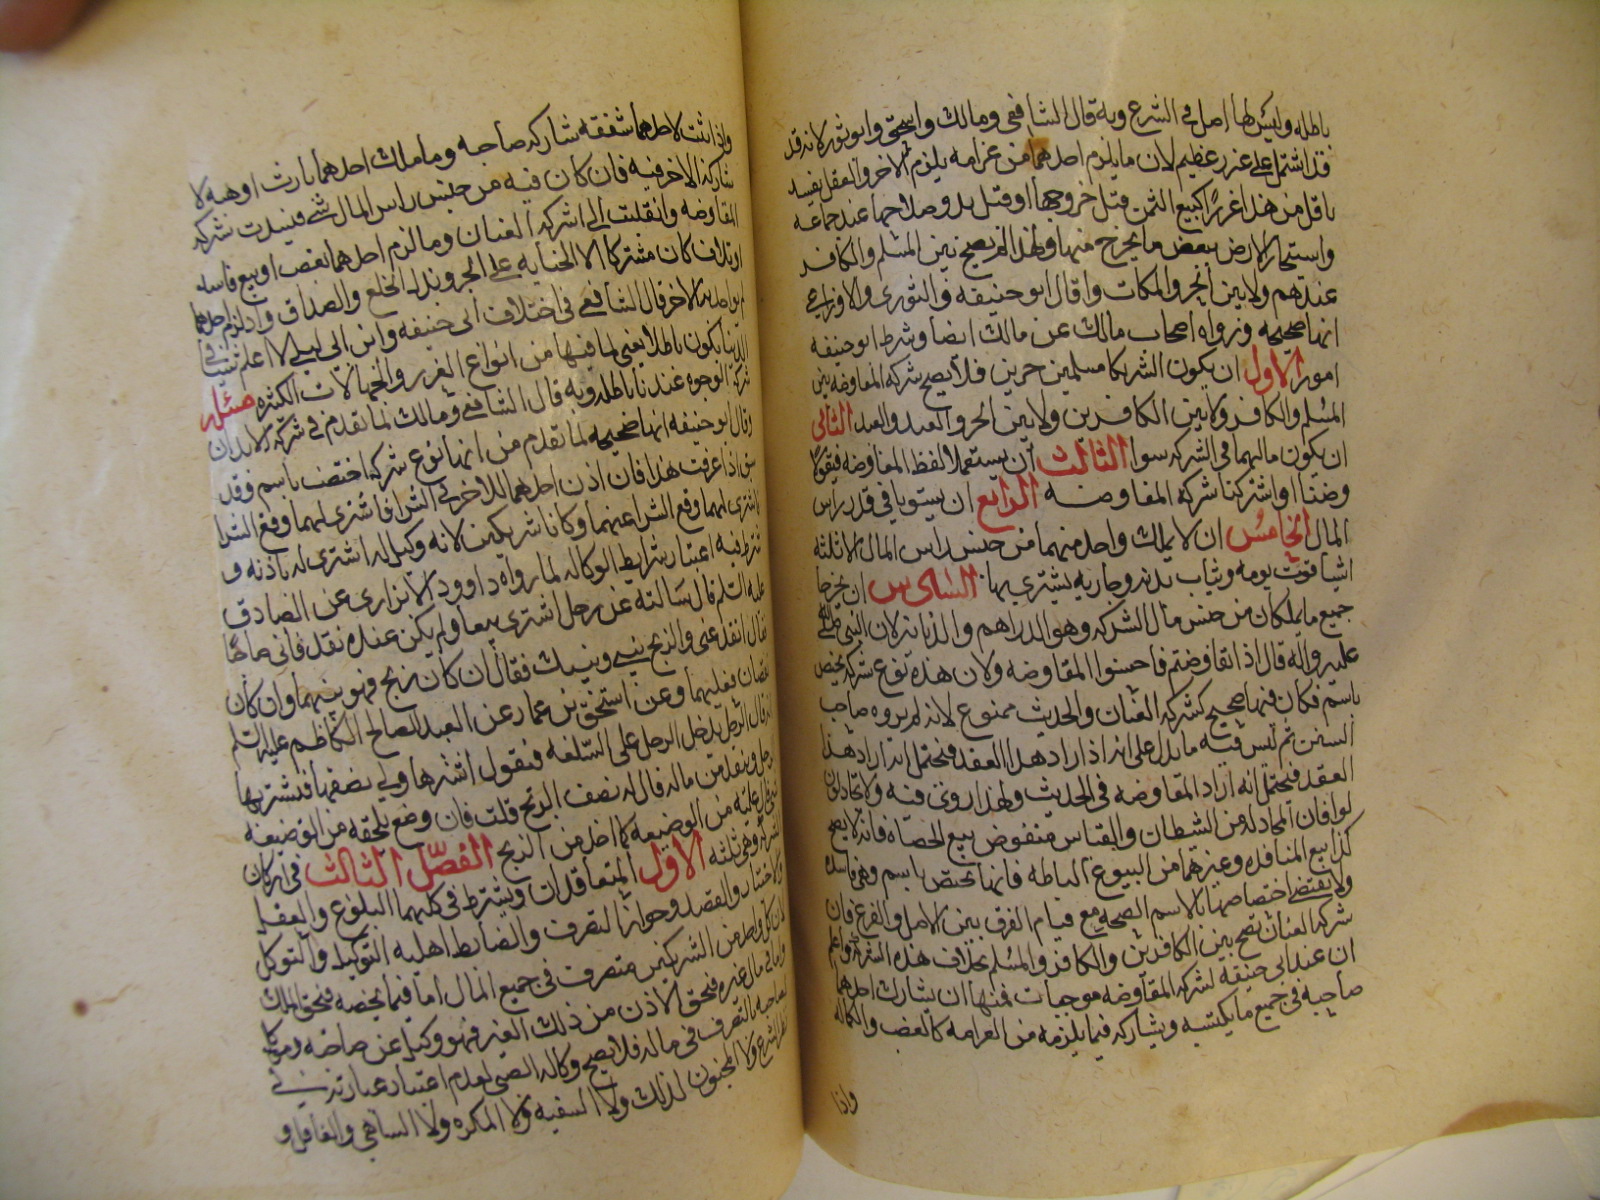 باطله وليس لها اصل في الشرع وبه قال الشافعي ومالك واسحق وابو ثور لانه قد
قد اشتمل على غرر عظيم لان ما يلزم احدهما من غرامه يلزم الاخر والعقد يفسد
باقل من هذا غررا كبيع الثمن قبل خروجها او قبل بدو صلاحها عند جماعه
واستيجار الارض ببعض ما يخرج منها ولهذا لم يصح بين المسلم والكافر
عندهم ولا بين الحر والمكاتب وقال ابو حنيفه والثوري والاوزاعي
انها صحيحه ورواه اصحاب مالك عن مالك ايضا وشرط ابو حنيفه
امورا الاول ان يكون الشريكا مسلمين حرين فلا يصح شركه المفاوضه بين
المسلم والكافر ولا بين الكافرين ولا بين الحر والعبد والعبد الثاني
ان يكون ماليهما في الشركه سوا الثالث ان يستعملا لفظ المفاوضه فيقولا
وضنا او اشتركنا شركه المفاوضه الرابع ان يستويا في قدر راس
المال الخامس ان لا يملك واحد منهما من جنس راس المال الا ثلثه
اشيا قوت يومه وثياب بدنه وجاريه يشتري بها السادس ان يخرجا
جميع ما يملكان من جنس مال الشركه وهو الدراهم والدنانير لان النبي صلى الله
عليه واله قال اذا تفاوضتم فاحسنوا المفاوضه ولان هذه نوع شركه يختص
باسم فكان فيها صحيح كشركه العنان والحديث ممنوع لانه لم يروه صاحب
السنن ثم ليس فيه ما يدل على انه اراد هذا العقد فيحتمل انه اراد هذا
العقد فيحتمل انه اراد المفاوضه في الحديث ولهذا روى فيه ولا تجادلوا
لو افان المجادله من الشيطان والقياس منقوض ببيع الحصاه فانه لا يصح
كذا بيع المنابذه وغيرهما من البيوع الباطله فانها تختص باسم وهي فاسده
ولا يقتضي اختصاصها بالاسم الصحه مع قيام الفرق بين الاصل والفرع فان
شركه العنان تصح بين الكافرين والكافر والمسلم بخلاف هذه الشركه واعلم
ان عند ابي حنيفه لشركه المفاوضه موجبات فمنها ان يشارك احدهما
صاحبه في جميع ما يكتسبه ويشاركه فيما يلزمه من الغرامه كالغصب والكفاله
واذا
واذا ثبت لاحدهما شفقه شاركه صاحبه وما ملك احدهما بارث او هبه لا
يشاركه الاخر فيه فان كان فيه من جنس راس المال شي فسدت شركه
المفاوضه وانقلبت الى شركه العنان وما لزم احدهما بغصب او بيع فاسد
او اتلاف كان مشتركا الا الجنايه على الحر وبدل الخلع والصداق واذا لزم احدهما
الاخر قال الشافعي في اختلاف ابي حنيفه وابن ابي ليلى لا اعلم شيئا في
الدنيا يكون باطلا يعني لما فيها من انواع الغرر والجهالات الكثيره مسئله
شركه الوجوه عندنا باطله وبه قال الشافعي ومالك لما تقدم في شركه الابدان
وقال ابو حنيفه انها صحيحه لما تقدم من انها نوع شركه اختصت باسم وقد
سبق اذا عرفت هذا فان اذن احدهما للاخر في الشرا فاشترى لهما وقع الشرا
اشترى لهما وقع الشرا عنهما وكانا شريكين لانه وكيل له اشترى له باذنه و
يشترط فيه اعتبار شرايط الوكاله لما رواه داوود الابزاري عن الصادق
عليه السلم قال سالته عن رجل اشترى بيعا ولم يكن عنده نقد فاتى صاحبا
فقال انقد عني والربح بيني وبينك فقال ان كان ربح فهو بينهما وان كان
نقصان فعليهما وعن اسحق بن عمار عن العبد الصالح الكاظم عليه السلم
انه قال الرجل يدخل الرجل على السلعه فيقول اشترها ولي نصفها فيشتريها
الرجل وينقد من ماله قال له نصف الربح قلت فان وضع يلحقه من الوضيعه
عليه من الوضيعه كما اخذ من الربح الفصل الثالث في اركان
الشركه وهي ثلثه الاول المتعاقدان ويشترط في كليهما البلوغ والعقل
والاختيار والقصد وجواز التصرف والضابط اهليه التوكيل والتوكل
لان كل واحد من الشريكين متصرف في جميع المال اما فيما يخصه فبحق الملك
واما في مال غيره فبحق الاذن من ذلك الغير فهو وكيل عن صاحبه وموكل
لصاحبه بالتصرف في ماله فلا يصح وكاله الصبي لعدم اعتبار عبارته في
نظر الشرع ولا المجنون لذلك ولا السفيه ولا المكره ولا الساهي والغافل و